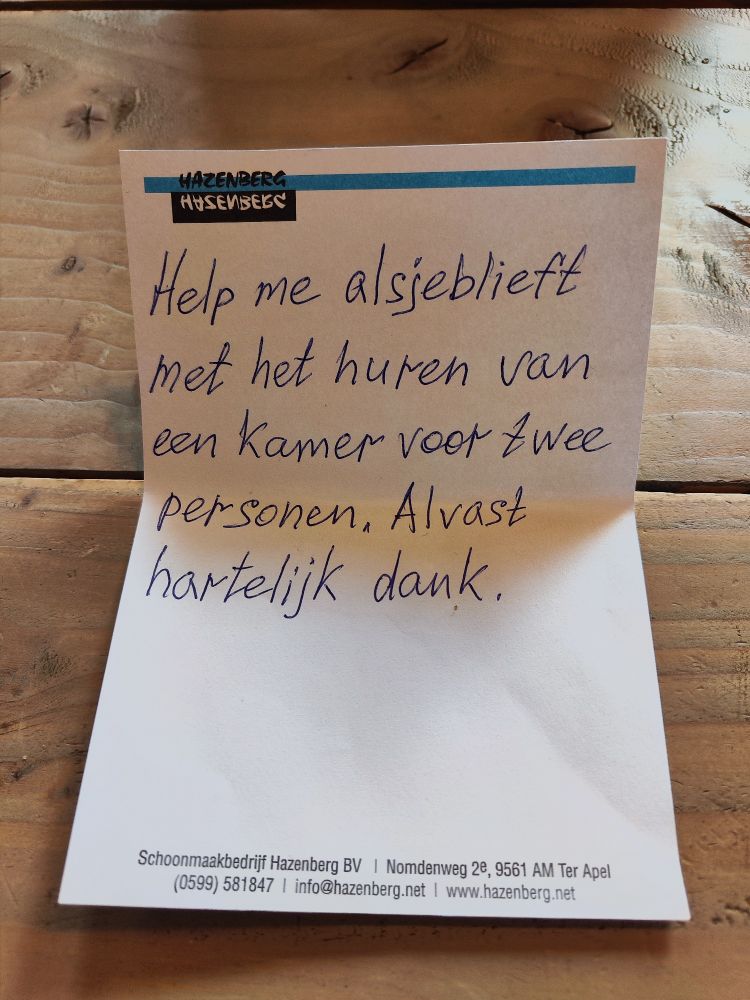 HAZENBERG
HAZENBERG
Help me alsjeblieft
met het huren van
een kamer voor twee
personen. Alvast
hartelijk dank.
Schoonmaakbedrijf Hazenberg BV | Nomdenweg 2e, 9561 AM Ter Apel
(0599) 581847 | info@hazenberg.net | www.hazenberg.net